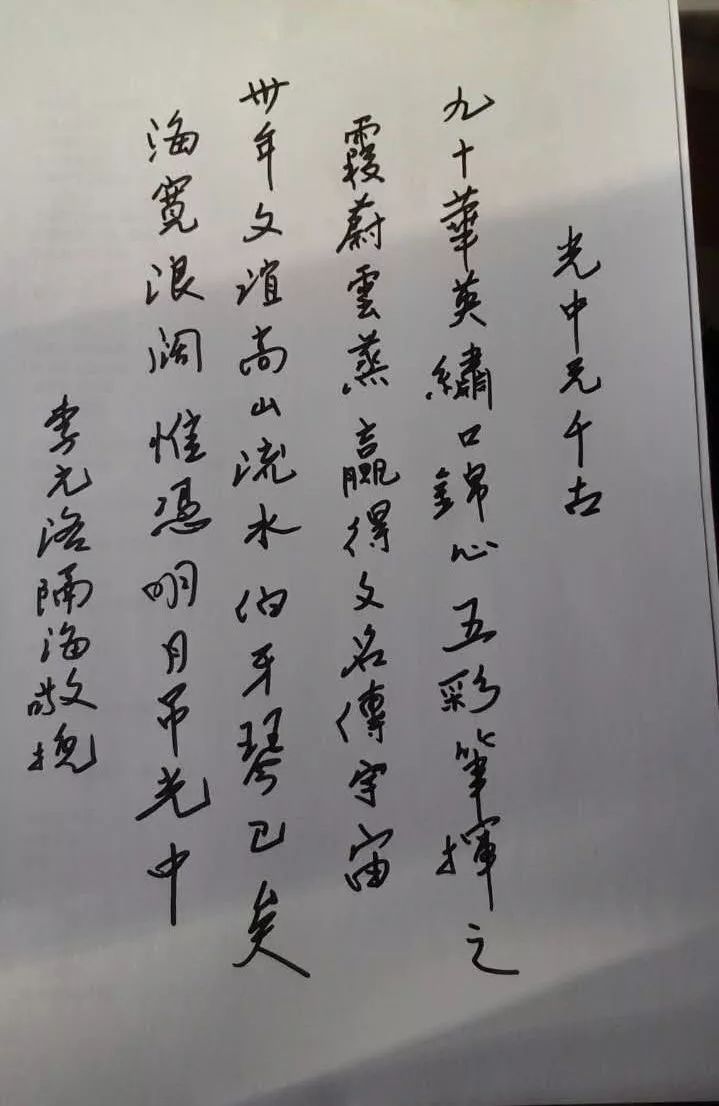 光中兄千古
九十華英繡口錦心五彩筆揮之
霞蔚雲蒸贏得文名傳宇宙
卅年文誼高山流水伯牙琴已矣
海寬浪闊惟憑明月吊光中
李元洛隔海敬挽